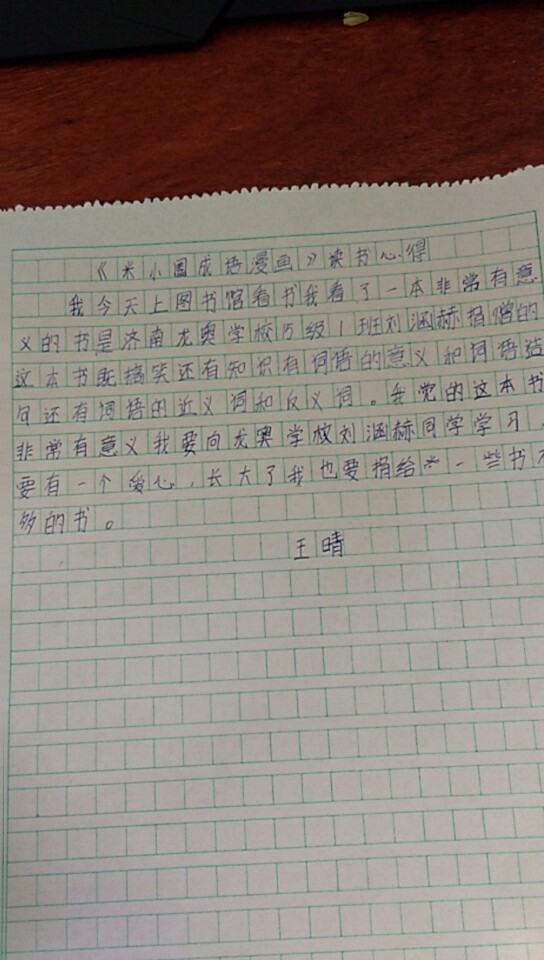 《米小圈成语漫画》读书心得
我今天上图书馆看书我看了一本非常有意
义的书是济南龙奥学校15级1班刘涵赫捐憎的
这本书既搞笑还有知识有词语的意义和词语造
句还有词语的近义词和反义词。我党的这本书
非常有意义我要向龙奥学校刘涵赫同学学习，
要有一个爱心，长大了我也要捐给一些书不
够的书。
王晴